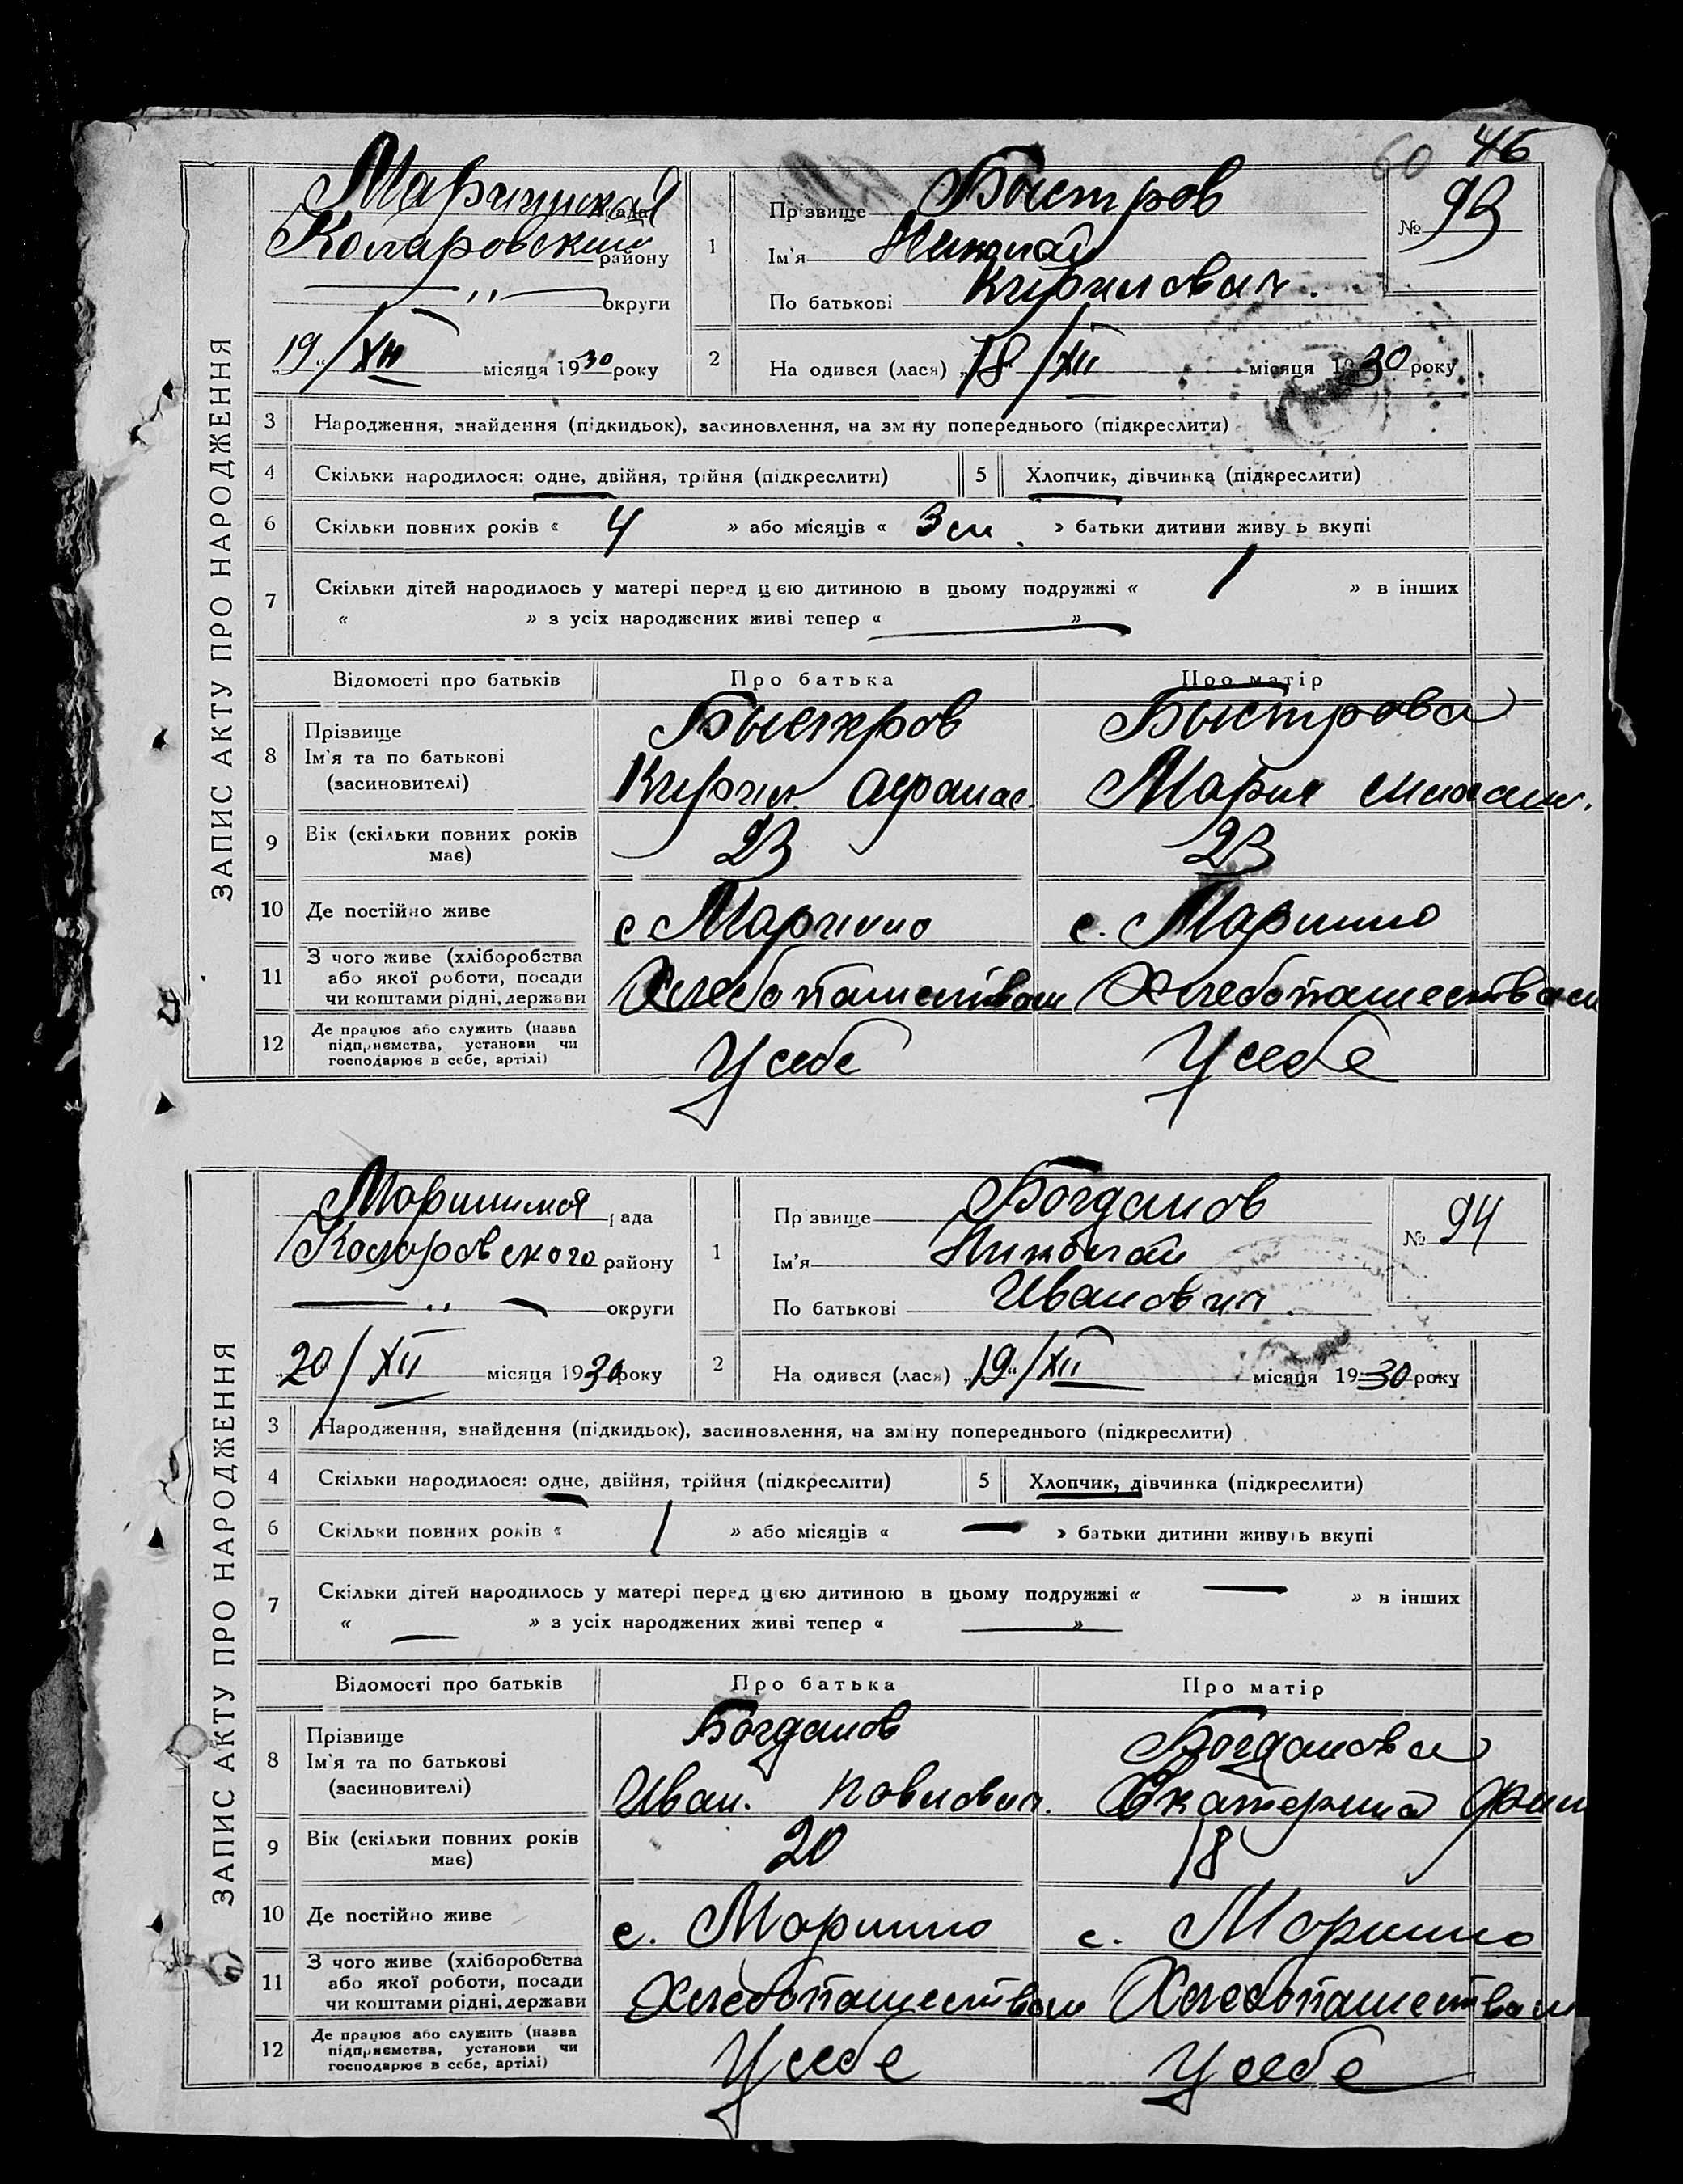 46
60
ЗАПИС АКТУ ПРО НАРОДЖЕННЯ
Маринская рада
Коларовский району
— " — округи
„19“/XII місяця 1930 року
1
Прізвище Быстров
Ім'я Николай
По батькові Кирилович.
№ 93
2
На одився (лася) „18“/XII місяця 1930 року
3 Народження, знайдення (підкидьок), засиновлення, на зм ну попереднього (підкреслити)
4 Скільки народилося: одне, двійня, трійня (підкреслити) 5 Хлопчик, дівчинка (підкреслити)
6 Скільки повних років « 4 » або місяців « 3 м. » батьки дитини живу ь вкупі
7 Скільки дітей народилось у матері перед цією дитиною в цьому подружжі « 1 » в інших
« » з усіх народжених живі тепер « — »
Відомості про батьків Про батька Про матір
8 Прізвище
Ім'я та по батькові
(засиновителі)
Быстров
Кирил Афанас.
Быстрова
Мария
9 Вік (скільки повних років
має)
23 23
10 Де постійно живе с Марино с. Марино
11 З чого живе (хліборобства
або якої роботи, посади
чи коштами рідні, держави
Хлебопашеством Хлебопашеством
12 Де працює або служить (назва
підприємства, установи чи
господарює в себе, артілі)
У себе У себе
ЗАПИС АКТУ ПРО НАРОДЖЕННЯ
Маринская рада
Коларовского району
— " — округи
„20/XII місяця 1930 року
1
Пр звище Богданов
Ім'я Николай
По батькові Иванович.
№ 94
2
На одився (лася) „19“/XII місяця 1930 року
3 Народження, знайдення (підкидьок), засиновлення, на зміну попереднього (підкреслити)
4 Скільки народилося: одне, двійня, трійня (підкреслити) 5 Хлопчик, дівчинка (підкреслити)
6 Скільки повних років « 1 » або місяців « — » батьки дитини живуть вкупі
7 Скільки дітей народилось у матері перед цією дитиною в цьому подружжі « — » в інших
« — » з усіх народжених живі тепер « — »
Відомості про батьків Про батька Про матір
8 Прізвище
Ім'я та по батькові
(засиновителі)
Богданов
Иван. Павлович.
Богданова
Екатерина
9 Вік (скільки повних років
має)
20 18
10 Де постійно живе с. Марино с. Марино
11 З чого живе (хліборобства
або якої роботи, посади
чи коштами рідні, держави
Хлебопашеством Хлебопашеством
12 Де працює або служить (назва
підприємства, установи чи
господарює в себе, артілі)
У себе У себе